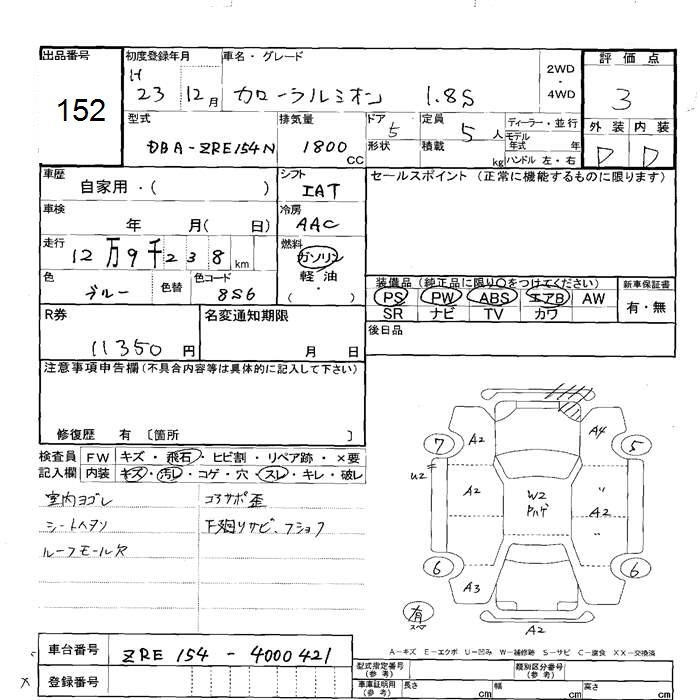 出品番号 初度登録年月 車名・グレード 評価点
152 H 23 12月 カローラルミオン 1.8S 2WD・4WD 3
型式 排気量 ドア 5 定員 5人 ディーラー・並行 外装 内装
DBA-ZRE154N 1800CC 形状 積載 kg モデル年式 年 D D
ハンドル 左・右
車歴 シフト セールスポイント (正常に機能するものに限ります)
自家用・( ) IAT
車検 年 月( 日) 冷房 AAC
走行 12万9千238km 燃料 ガソリン
軽油・( )
色 ブルー 色替 色コード 8S6
装備品(純正品に限り〇をつけてください) 新車保証書
PS PW ABS エアB AW 有・無
SR ナビ TV カワ
R券 11350円 名変通知期限 月 日 後日品
注意事項申告欄(不具合内容等は具体的に記入して下さい)
修復歴 有 〔箇所 〕
検査員 FW キズ・飛石・ヒビ割・リペア跡・×要
記入欄 内装 キズ・汚レ・コゲ・穴・スレ・キレ・破レ
室内ヨゴレ コアサポ歪
シートヘタリ 下廻りサビ、フショク
ルーフモール欠
A2 A4
7 5
U2
A2 W2 〃
ハゲ A2
〃
6 6
A3
有
スペア
A2
A-キズ E-エクボ U-凹み W-補修跡 S-サビ C-腐食 XX-交換済
車台番号 ZRE154-4000421
登録番号
型式指定番号(参考) 類別区分番号(参考)
車庫証明用(参考) 長さ cm 幅 cm 高さ cm